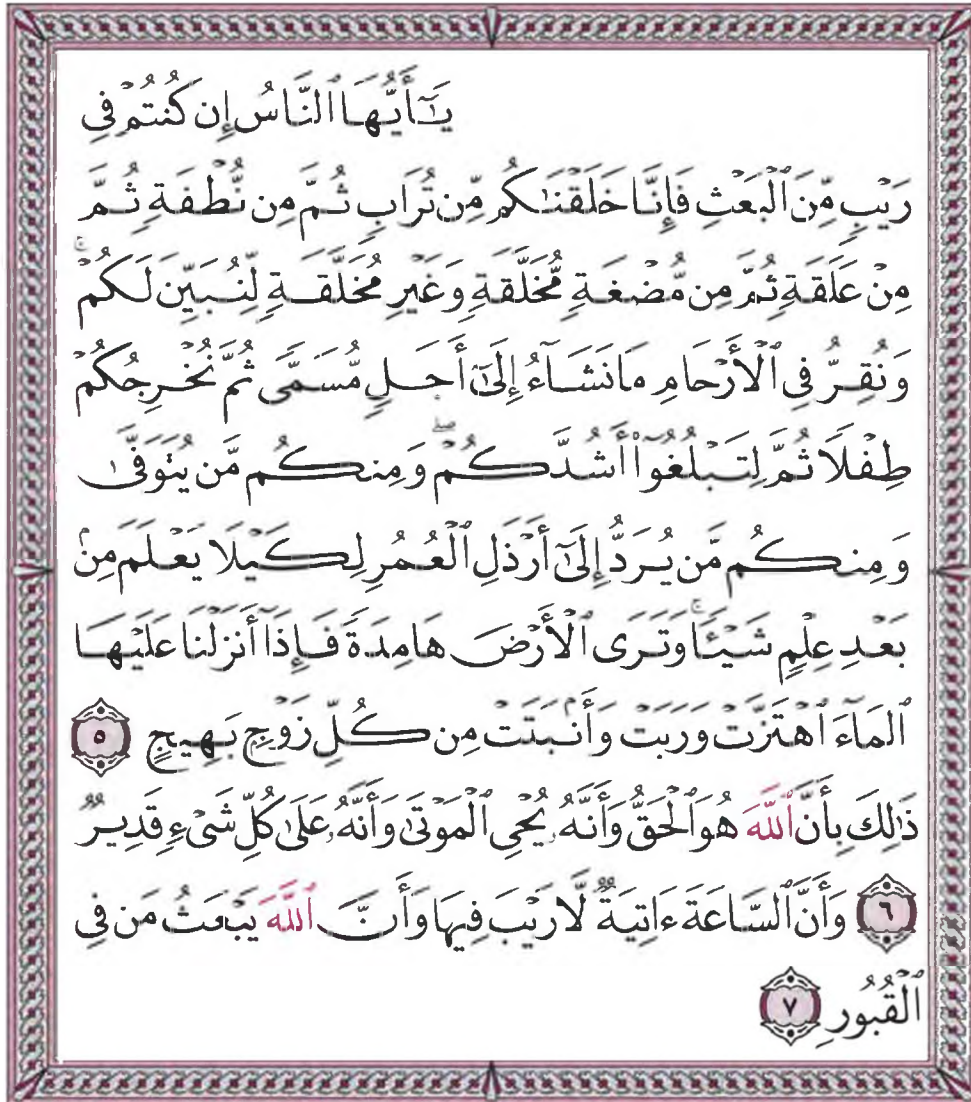 يَٰٓأَيُّهَا ٱلنَّاسُ إِن كُنتُمْ فِى
رَيْبٍ مِّنَ ٱلْبَعْثِ فَإِنَّا خَلَقْنَٰكُم مِّن تُرَابٍ ثُمَّ مِن نُّطْفَةٍ ثُمَّ
مِنْ عَلَقَةٍ ثُمَّ مِن مُّضْغَةٍ مُّخَلَّقَةٍ وَغَيْرِ مُخَلَّقَةٍ لِّنُبَيِّنَ لَكُمْ ۚ
وَنُقِرُّ فِى ٱلْأَرْحَامِ مَا نَشَآءُ إِلَىٰٓ أَجَلٍ مُّسَمًّى ثُمَّ نُخْرِجُكُمْ
طِفْلًا ثُمَّ لِتَبْلُغُوٓا۟ أَشُدَّكُمْ ۖ وَمِنكُم مَّن يُتَوَفَّىٰ
وَمِنكُم مَّن يُرَدُّ إِلَىٰٓ أَرْذَلِ ٱلْعُمُرِ لِكَيْلَا يَعْلَمَ مِنۢ
بَعْدِ عِلْمٍ شَيْـًٔا ۚ وَتَرَى ٱلْأَرْضَ هَامِدَةً فَإِذَآ أَنزَلْنَا عَلَيْهَا
ٱلْمَآءَ ٱهْتَزَّتْ وَرَبَتْ وَأَنۢبَتَتْ مِن كُلِّ زَوْجٍۭ بَهِيجٍ ٥
ذَٰلِكَ بِأَنَّ ٱللَّهَ هُوَ ٱلْحَقُّ وَأَنَّهُۥ يُحْىِ ٱلْمَوْتَىٰ وَأَنَّهُۥ عَلَىٰ كُلِّ شَىْءٍ قَدِيرٌ
٦ وَأَنَّ ٱلسَّاعَةَ ءَاتِيَةٌ لَّا رَيْبَ فِيهَا وَأَنَّ ٱللَّهَ يَبْعَثُ مَن فِى
ٱلْقُبُورِ ٧